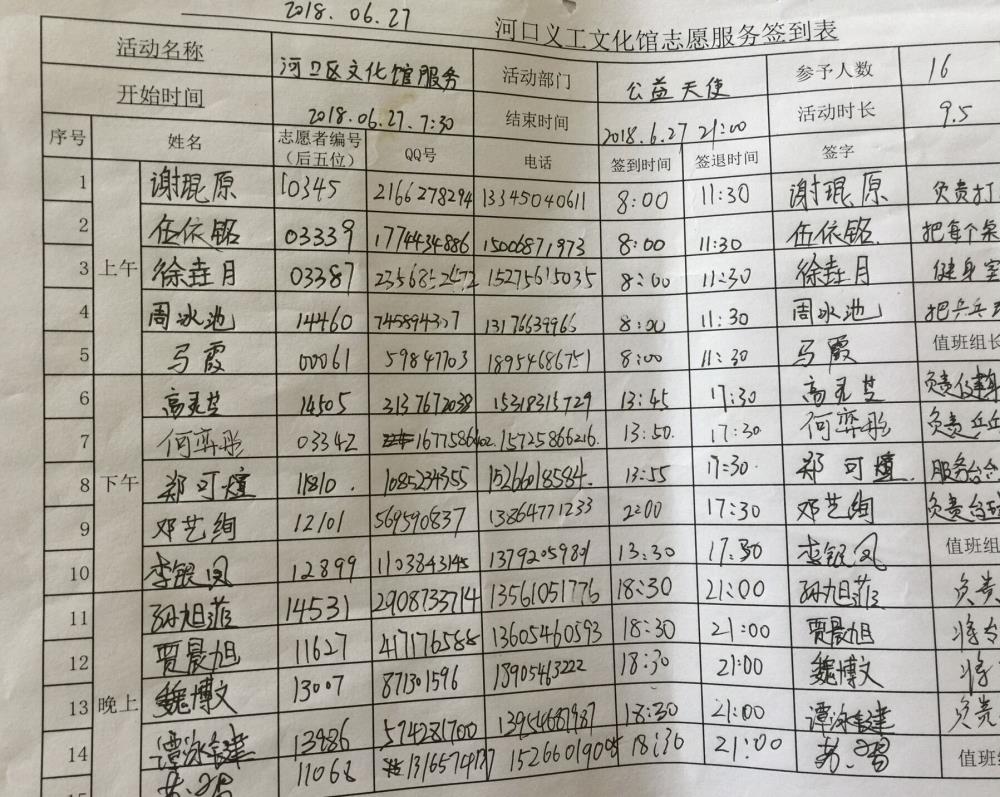 2018.06.27
河口义工文化馆志愿服务签到表
活动名称 河口区文化馆服务 活动部门 公益天使 参予人数 16
开始时间 2018.06.27.7:30 结束时间 2018.6.27 21:00 活动时长 9.5
序号 姓名 志愿者编号（后五位） QQ号 电话 签到时间 签退时间 签字
上午
1 谢琨原 10345 2166278294 13345040611 8:00 11:30 谢琨原 负责打
2 伍依铭 03339 1774434886 15006871973 8:00 11:30 伍依铭. 把每个桌
3 徐垚月 03387 15275615035 8:00 11:30 徐垚月 健身室
4 周冰池 14460 13176639966 8:00 11:30 周冰池 把乒乓
5 马霞 00061 59847703 18954686751 8:00 11:30 马霞 值班组长
下午
6 高灵芝 14505 3137672038 15318315729 13:45 17:30 高灵芝 负责健身
7 何弈彤 03342 1677586402. 15725866216. 13:50. 17:30 何弈彤 负责乒乓
8 郑可煊 11810. 1085234355 15266018584. 13:55 17:30. 郑可煊. 服务台台
9 邓艺绚 12101 569590837 13864771233 2:00 17:30 邓艺绚 负责
10 李银凤 12899 1103843145 13792059801 13:30 17:30 李银凤 值班组
晚上
11 孙旭菲 14531 2908733714 13561051776 18:30 21:00 孙旭菲 负责
12 贾晨旭 11627 417176588 13605460593 18:30 21:00 贾晨旭 将台
13 魏博文 13007 871301596 18905463222 18:30 21:00 魏博文 将
14 谭泳健 13986 574281700 13954687987 18:30 21:00 谭泳健 负责
11068 18:30 21:00 值班组